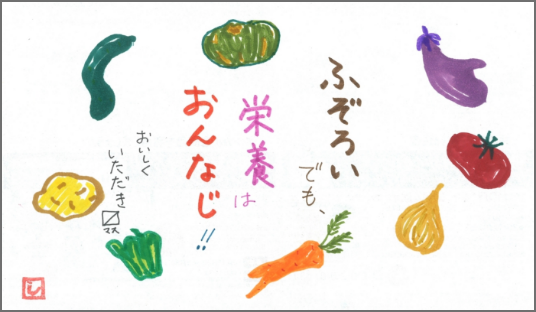 ふぞろい
でも、
栄養は
おんなじ!!
おいしく
いただき
〼
マス
し